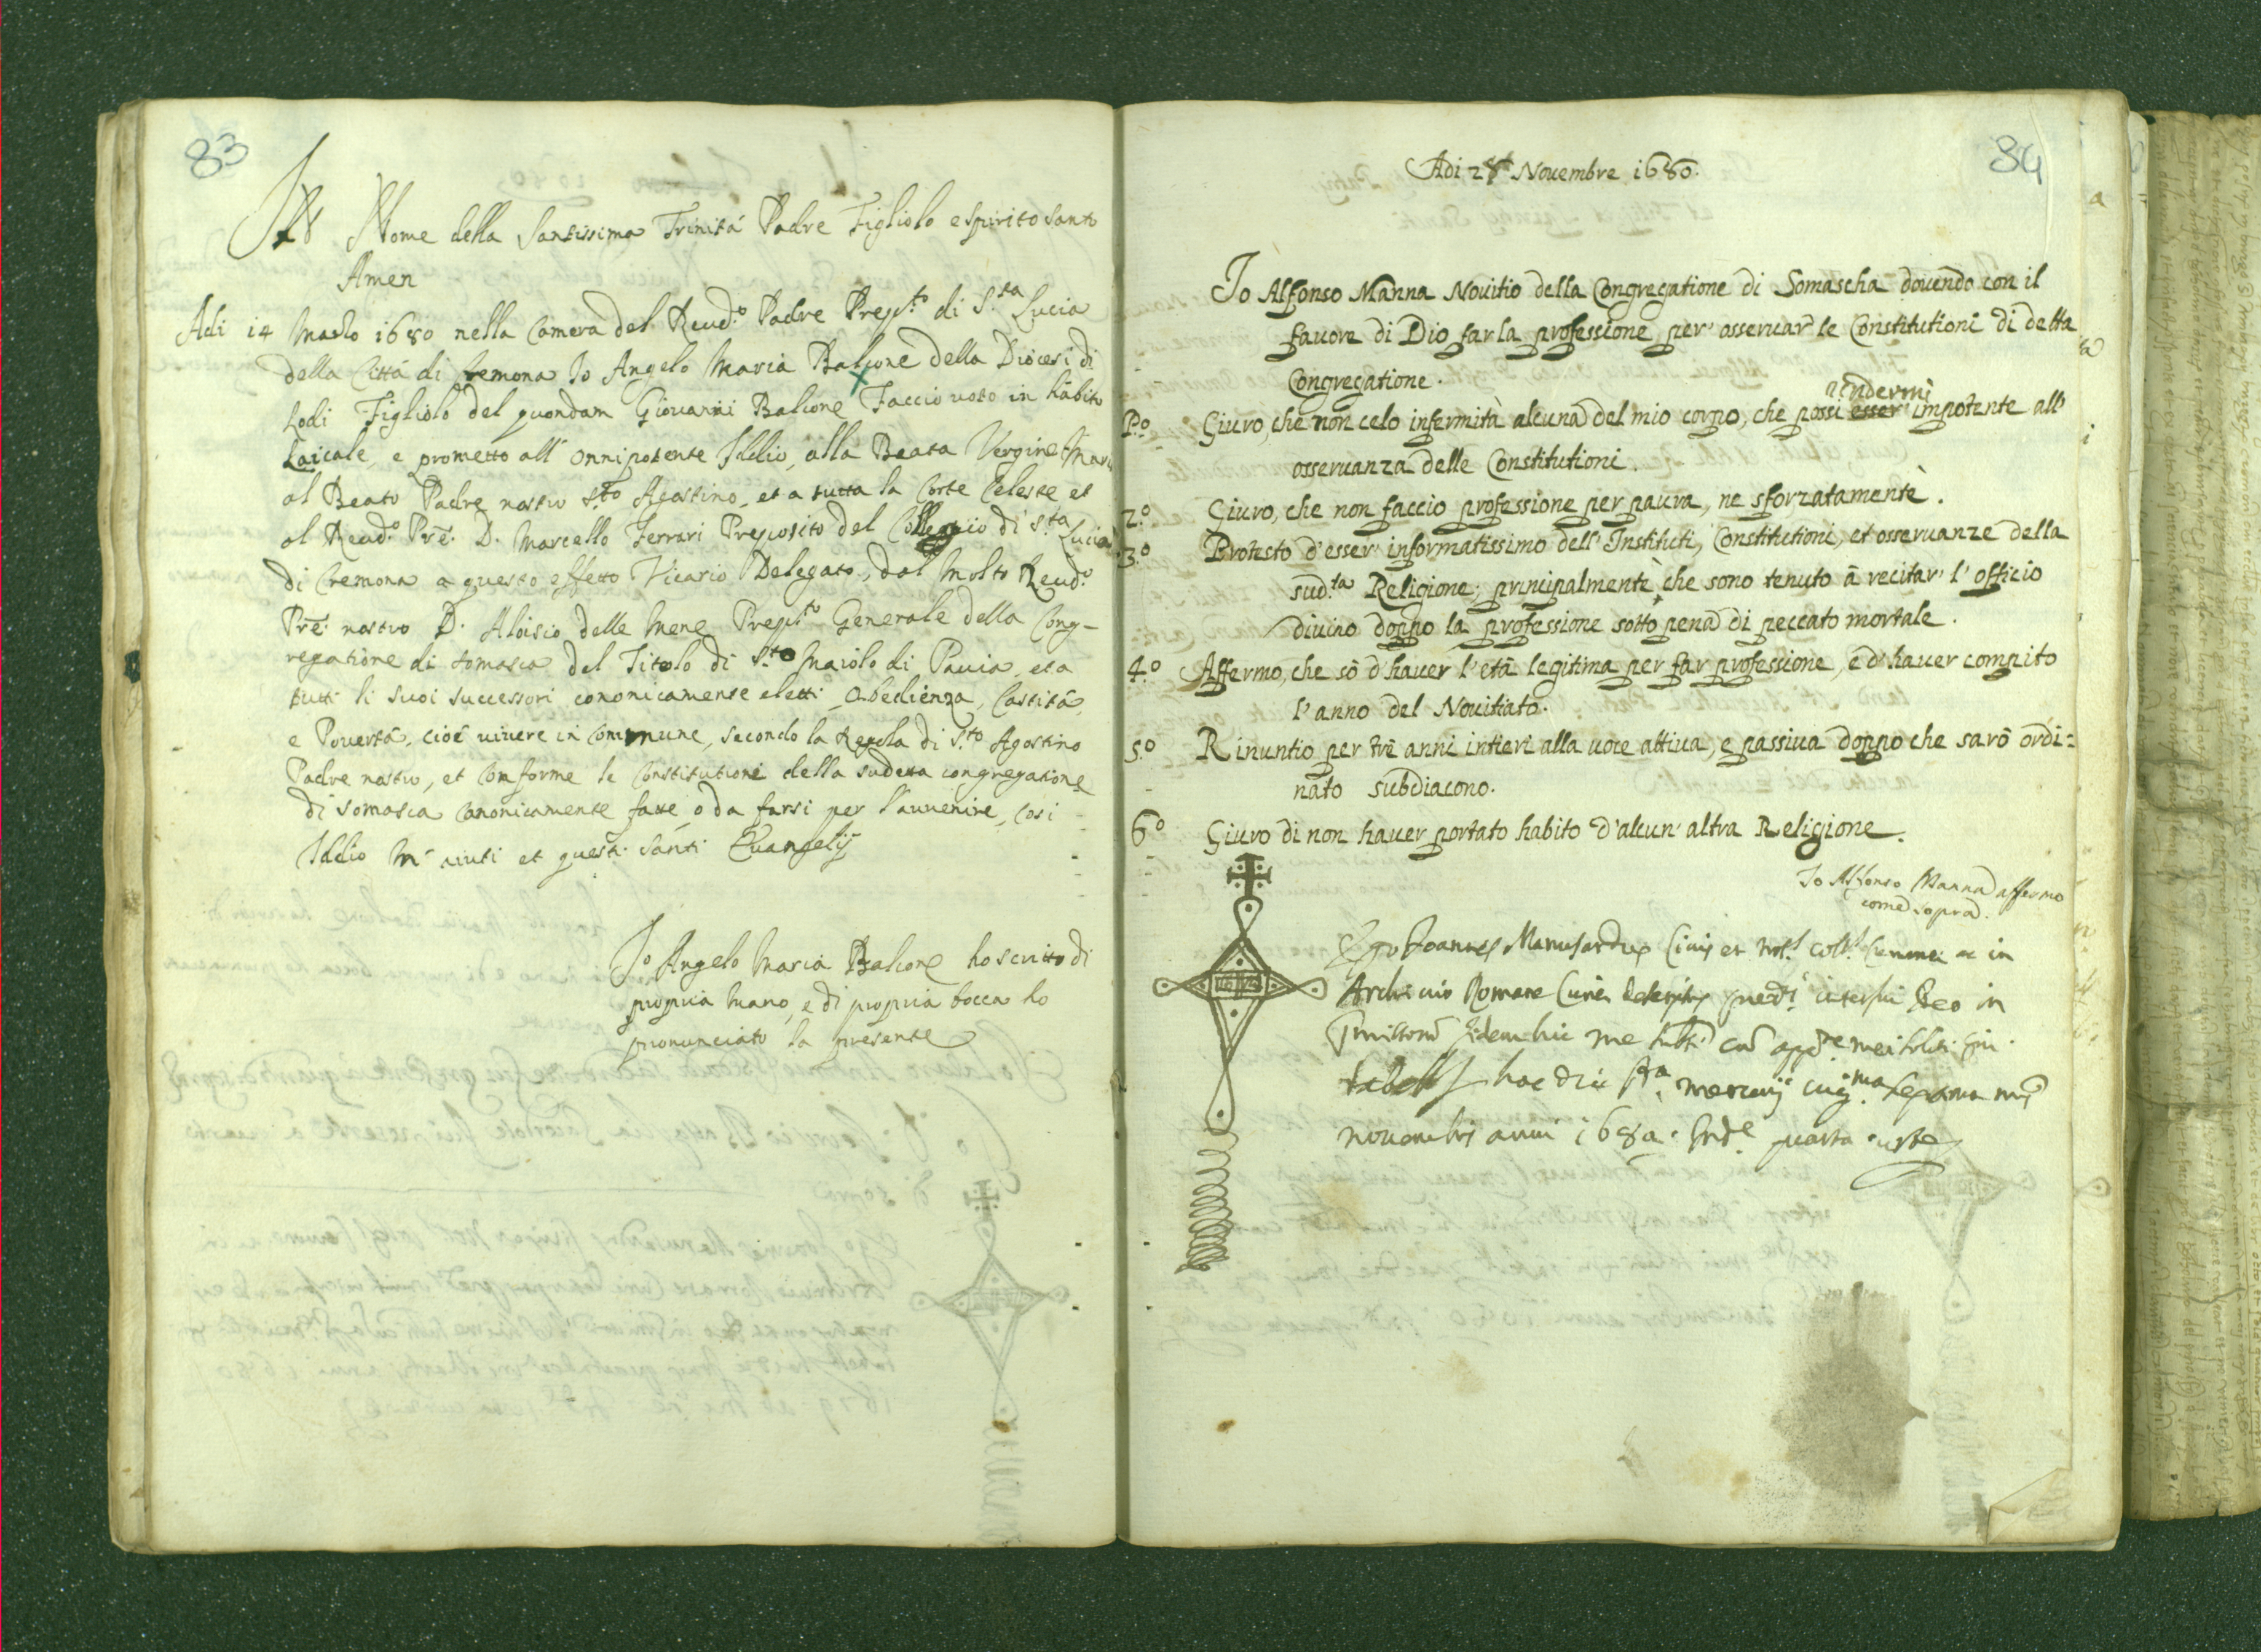 83
In Nome della Santissima Trinitá Padre Figliolo e Spirito Santo
Amen
Adi 14 Marzo 1680 nella Camera del Reud.o Padre Prep.to di S.ta Lucia
della Cittá di Cremona Io Angelo Maria Balcone della Diocesi di
Lodi Figliolo del quondam Giovanni Balcone Faccio voto in hábito
Laicale, e prometto all' Onnipotente Iddio, alla Beata Vergine Maria
al Beato Padre nostro S.to Agostino, et a tutta la Corte Celeste et
al Reud.o Prē. D. Marcello Ferrari Preposito del Colleggio di S.ta Lucia
di Cremona a questo effetto Vicario Delegato, dal Molto Reud.o
Prē. nostro D. Aloisio delle Mene Prep.to Generale della Cong-
regatione di Somasca del Titolo di S.to Maiolo di Pavia, et a
tutti li suoi successori cononicamente eletti Obedienza, Castitá,
e Povertá, cioé vivere in Commune, secondo la Regola di S.to Agostino
Padre nostro, et Conforme le Constitutioni della sudetta congregatione
di Somasca Canonicamente fatte, o da farsi per l'auvenire, Cosi
Iddio M' aiuti et questi Santi Evangelij
Io Angelo Maria Balcone ho scritto di
propria mano, e di propria bocca ho
pronunciato la presente
84
Adi 28 Novembre 1680.
Io Alfonso Manna Novitio della Congregatione di Somascha dovendo con il
favore di Dio far la professione per osservar le Constitutioni di detta
Congregatione.
rendermi
P.o Giuro, che non celo infermità alcuna del mio corpo, che possi esser impotente all'
osservanza delle Constitutioni.
2.o Giuro, che non faccio professione per paura, ne sforzatamente.
3.o Protesto d'esser informatissimo dell' Instituti, Constitutioni, et osservanze della
sud.ta Religione; principalmente, che sono tenuto á recitar l'officio
divino doppo la professione sotto pena di peccato mortale.
4.o Affermo, che só d'haver l'etá legitima per far professione, e d'haver compito
l'anno del Novitiato.
5.o Rinuntio per tré anni intieri alla voce attiva, e passiva doppo che saró ordi=
nato subdiacono.
6.o Giuro di non haver portato habito d'alcun' altra Religione.
Io Alfonso Manna affermo
come sopra.
Ego Joannes Manusardus Civis et Not.s Coll.s Cremone ac in
Archivio Romane Curie
in
hac die
novembris anni 1680. Ind.e quarta